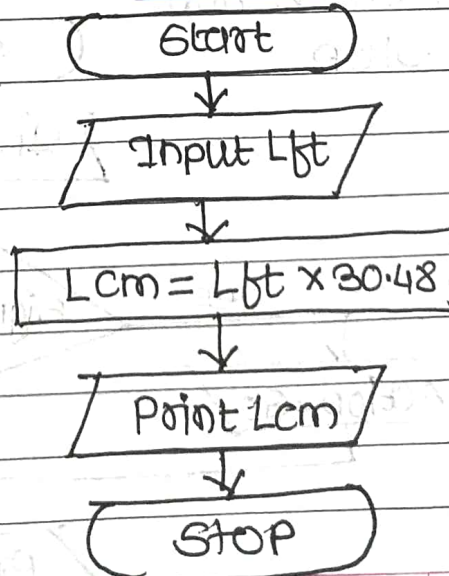 Start
Input Lft
Lcm = Lft × 30.48
Print Lcm
STOP